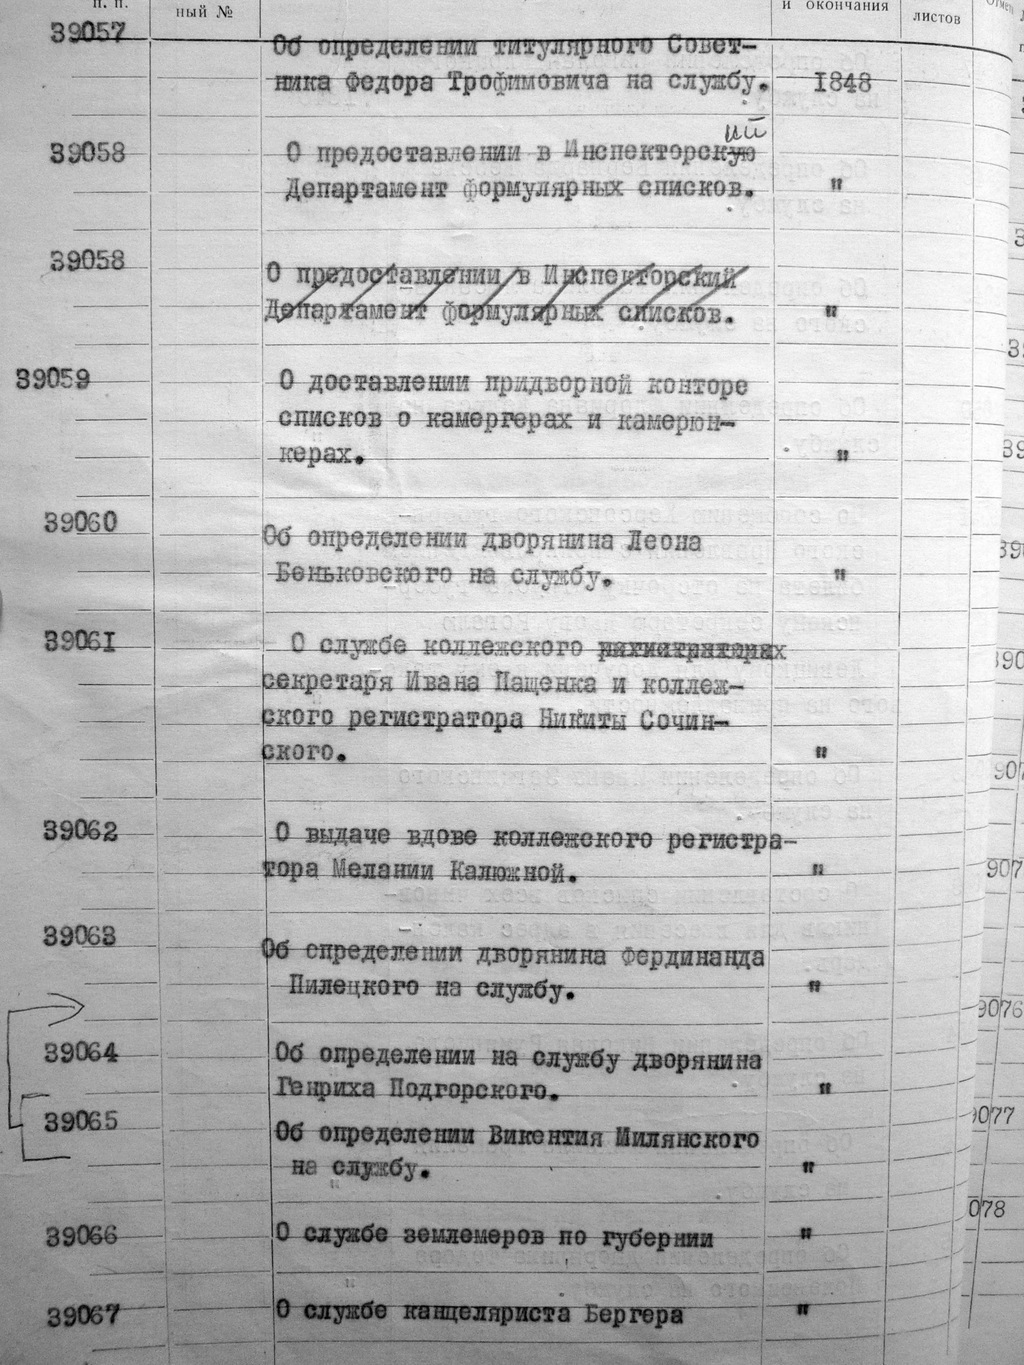 п. п.
ный №
и окончания
листов
39057
Об определении титулярного Совет-
ника Федора Трофимовича на службу. 1848
ий
39058 О предоставлении в Инспекторскую
Департамент формулярных списков. "
39058 О предоставлении в Инспекторский
Департамент формулярных списков. "
39059 О доставлении придворной конторе
списков о камергерах и камерюн-
керах. "
39060 Об определении дворянина Леона
Беньковского на службу. "
39061 О службе коллежского
секретаря Ивана Пащенка и коллеж-
ского регистратора Никиты Сочин-
ского. "
39062 О выдаче вдове коллежского регистра-
тора Мелании Калюжной. "
39063 Об определении дворянина Фердинанда
Пилецкого на службу. "
39064 Об определении на службу дворянина
Генриха Подгорского. "
39065 Об определении Викентия Милянского
на службу. "
39066 О службе землемеров по губернии "
39067 О службе канцеляриста Бергера "